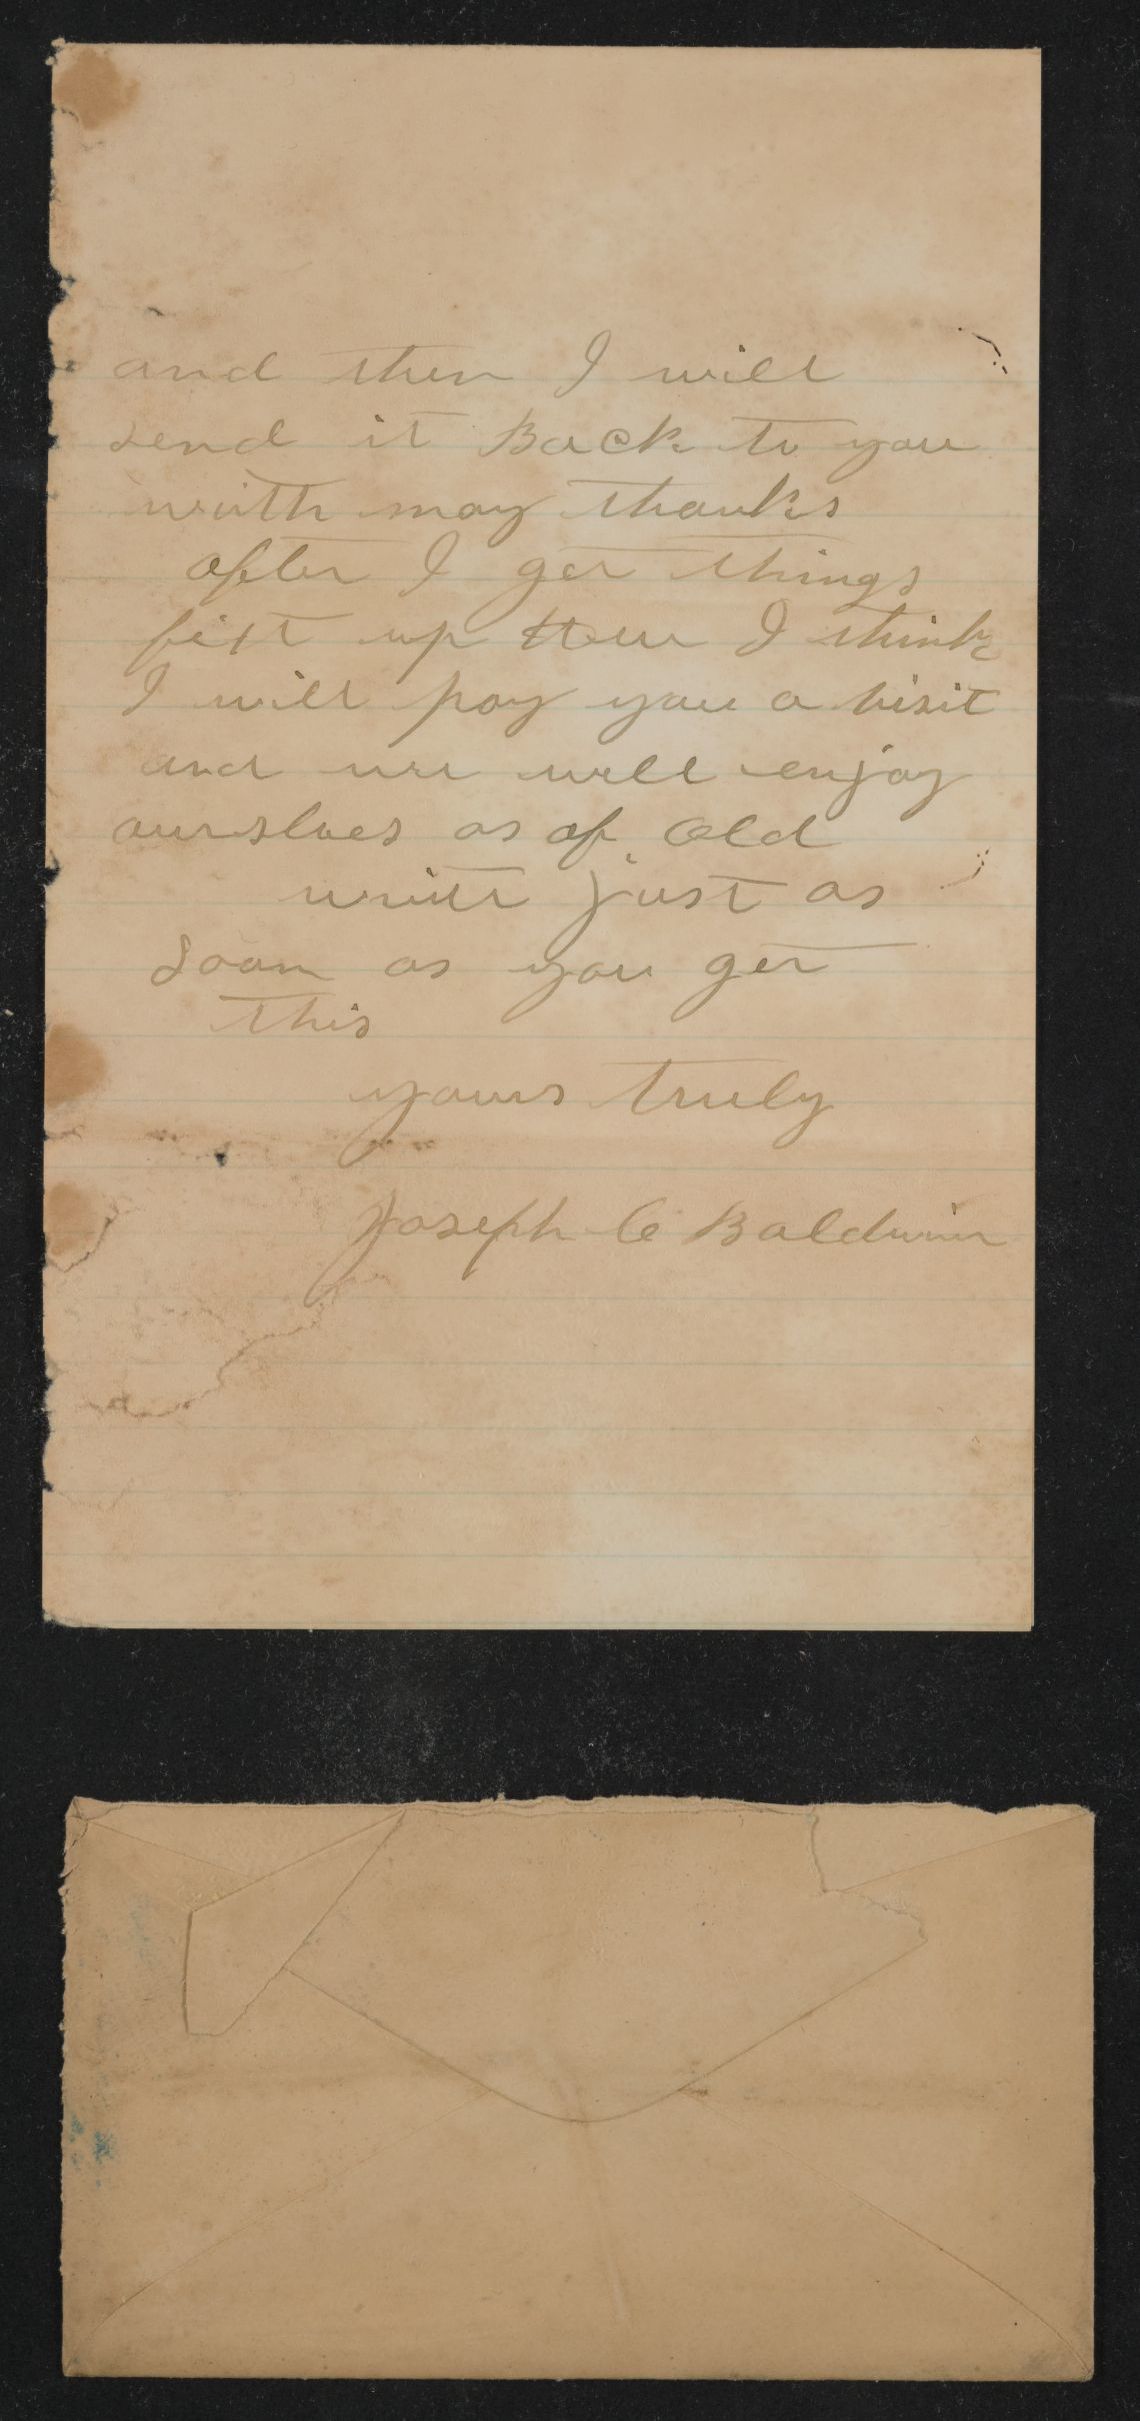 and then I will
send it Back to you
with may thanks
after I get things
fixt up I think
I will pay you a visit
and we will enjoy
ourslves as of old
write just as
soon as you get
this
yours truly
Joseph C Baldwin